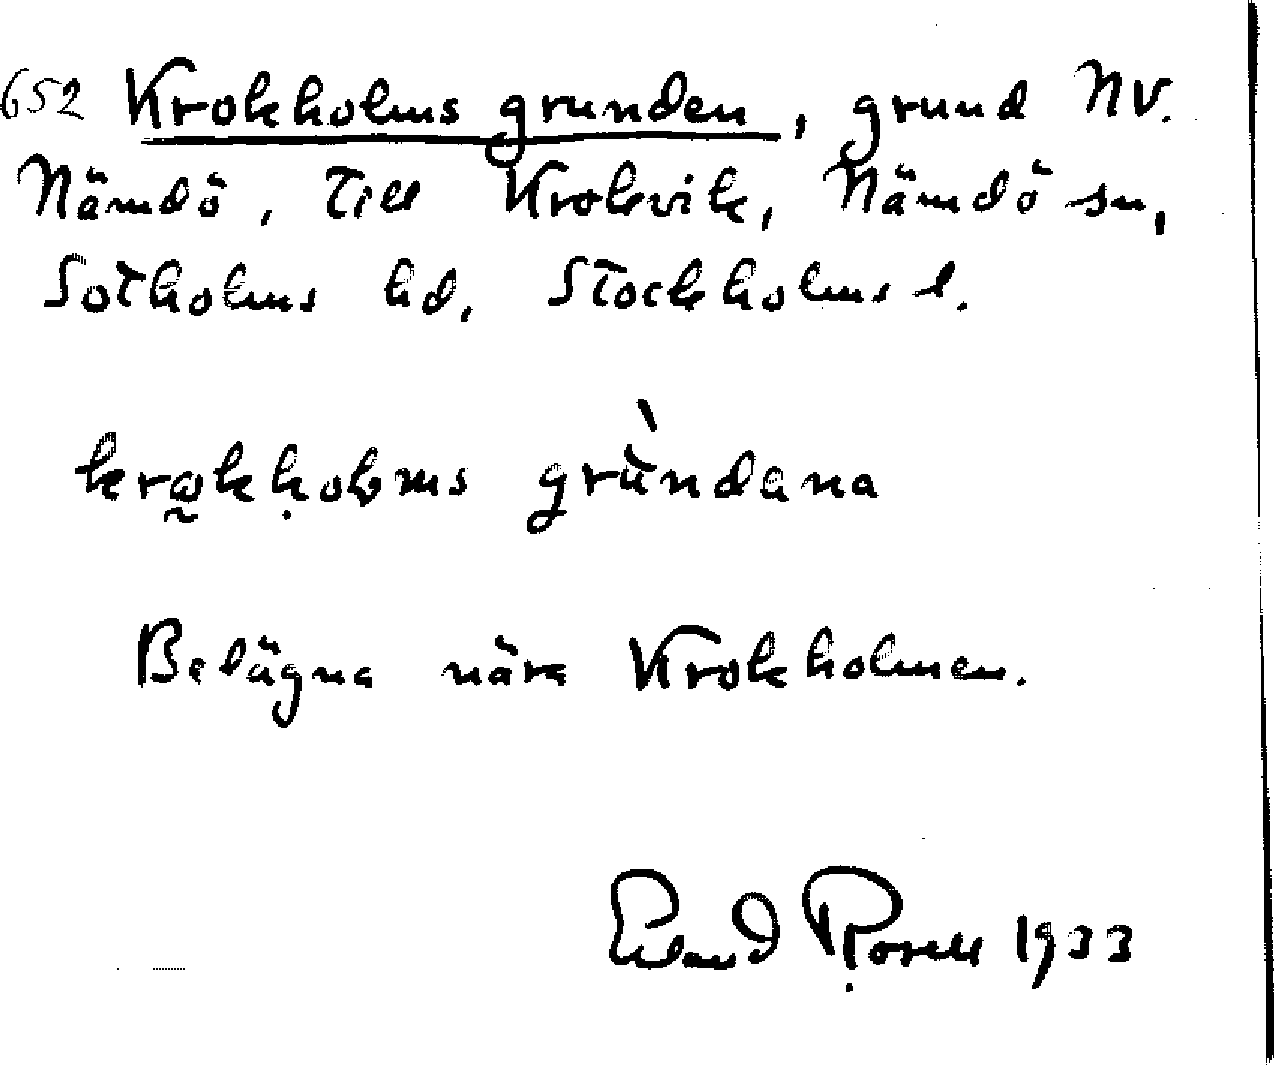 652 Krokholms grunden, grund NV.
Nämdö, Till Krokvik, Nämdö sn,
Sotholms hd, Stockholms l.
krɷ̰kḥolms grùndana
Belägna nära Krokholmen.
Erland Rosell 1933